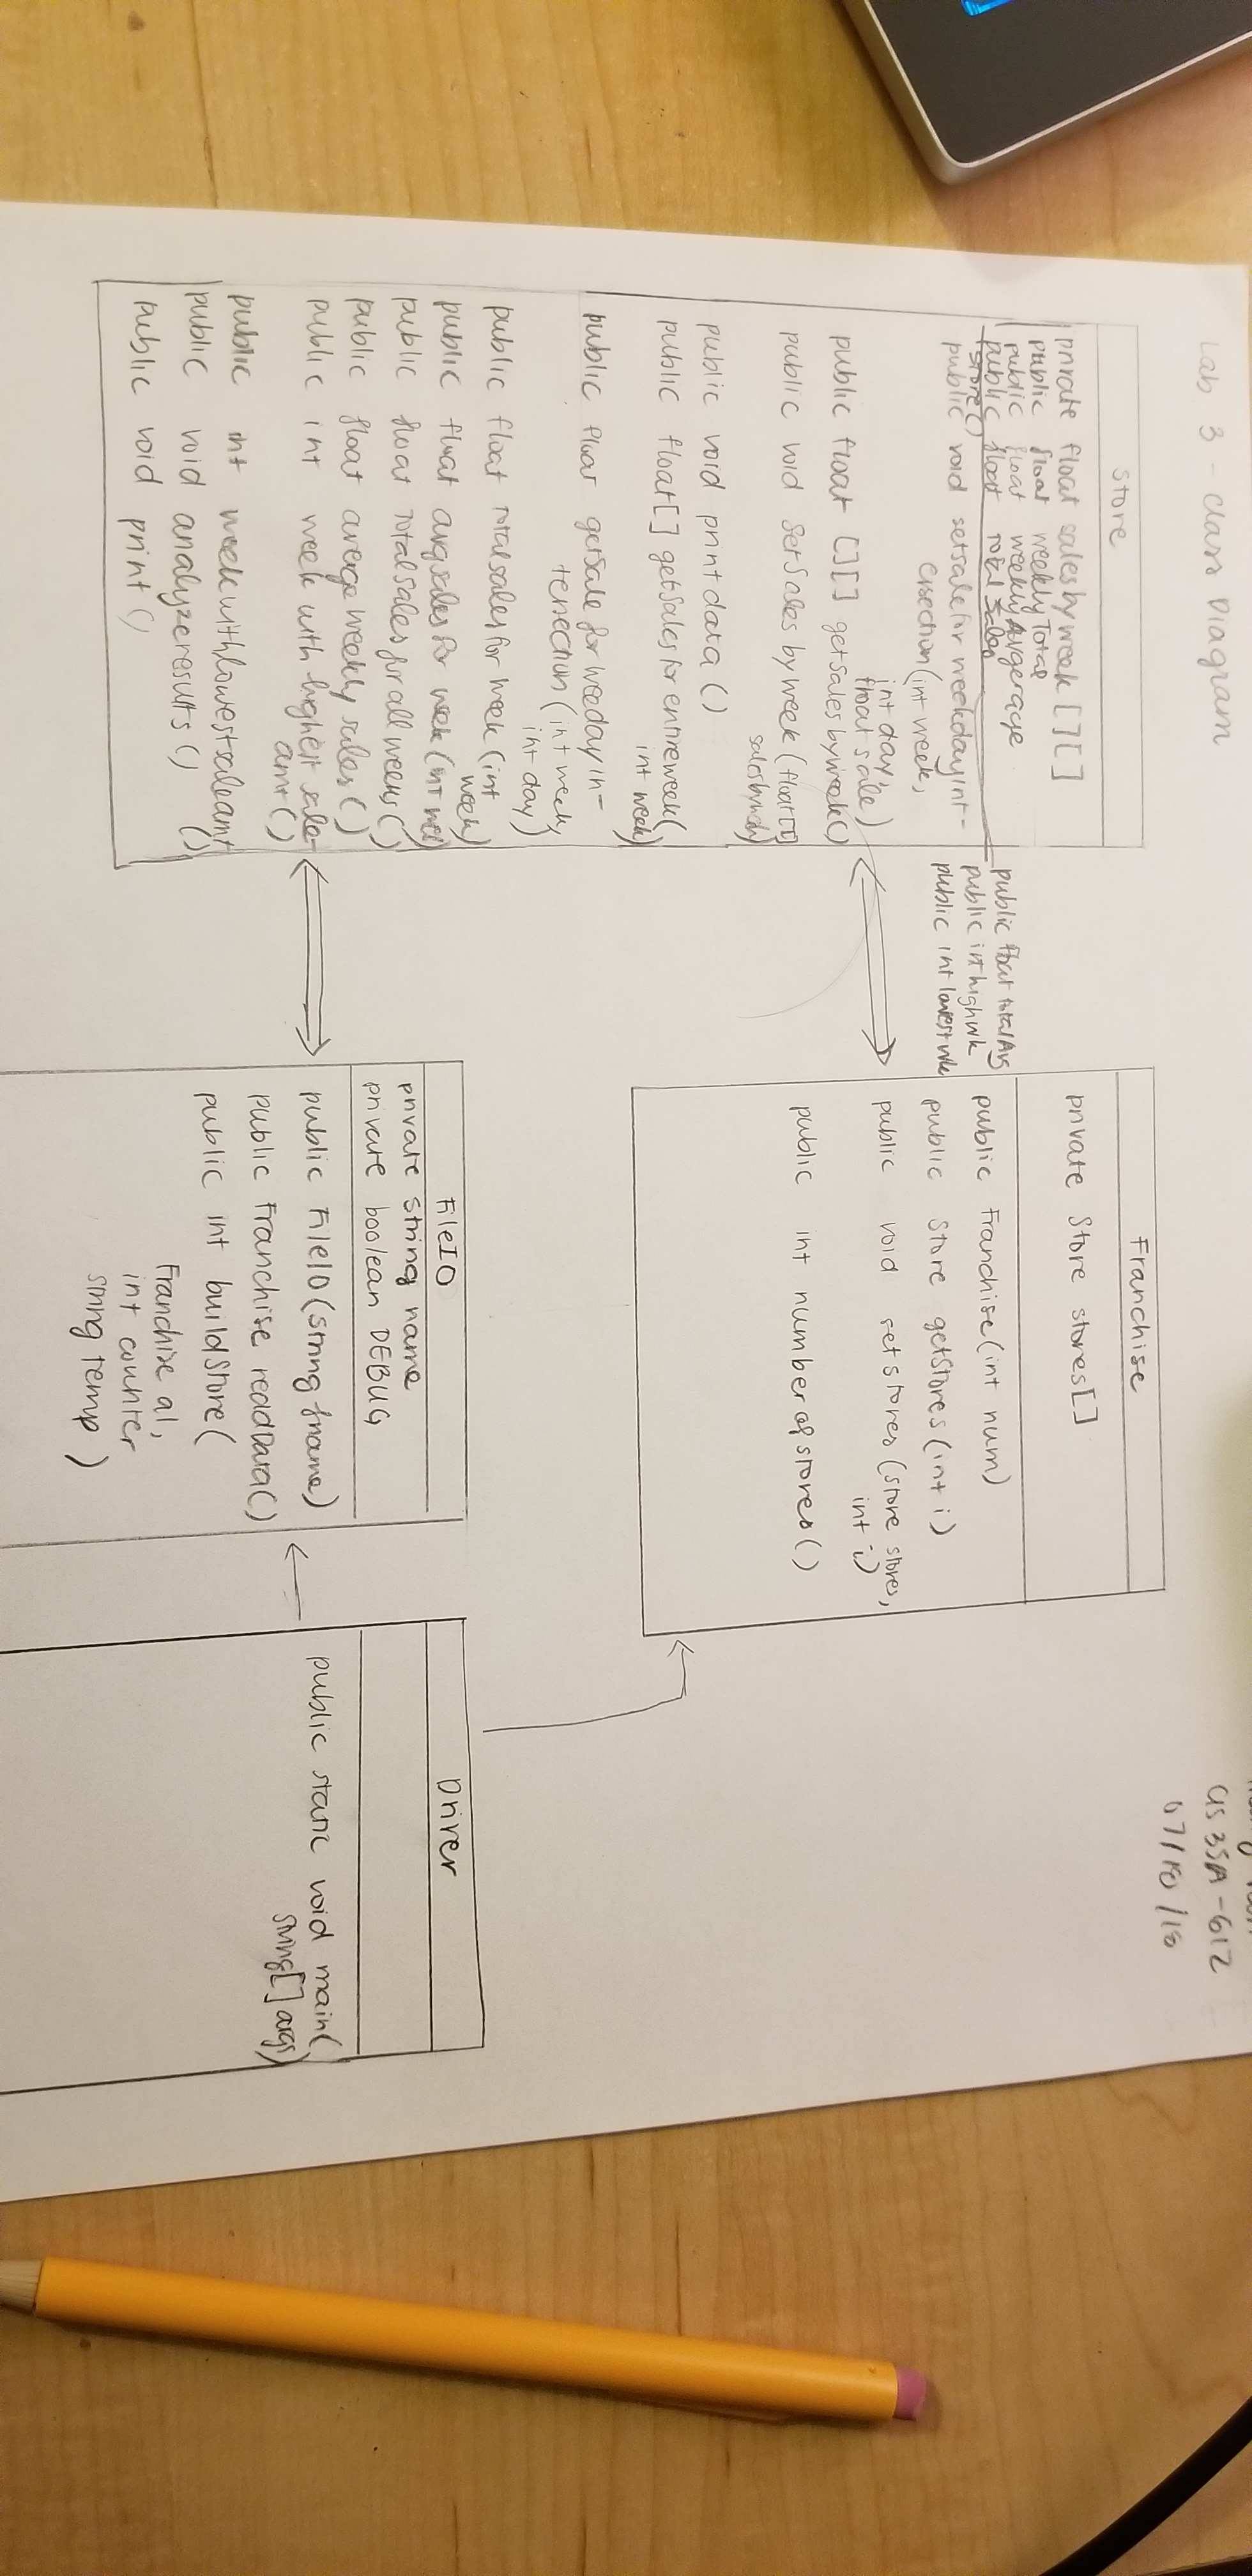 Lab 3 - Class Diagram
CIS 35A-61Z
07/18/18
Store
private float salesbyweek [][]
public float weeklyTotal
public float weekly Avgerage
public float total Sales
public float totalAvg
public int highwk
public int lowestwk
Store()
public void setsaleforweekdayint-
ersection (int week,
int day,
float sale)
public float [][] getsalesbyweek()
public void setsalesbyweek (float[][]
public void printdata ()
public float[] getsalesforentireweek(
int week)
public float getsaleforweekdayin-
tersection (int week,
int day)
public float totalsalesforweek (int
week)
public float avgsalesforweek (int week)
public float totalsalesforallweeks ()
public float averageweeklysales ()
public int weekwithhighestsale-
amt ()
public int weekwithlowestsaleamt
()
public void analyzeresults ()
public void print ()
Franchise
private Store stores[]
public Franchise (int num)
public Store getStores (int i)
public void setstores (store stores,
int i)
public int numberofstores ()
FileIO
private string name
private boolean DEBUG
public FileIO (string fname)
public Franchise readData()
public int buildStore (
Franchise a1,
int counter
string temp )
Driver
public static void main(
string[] args)